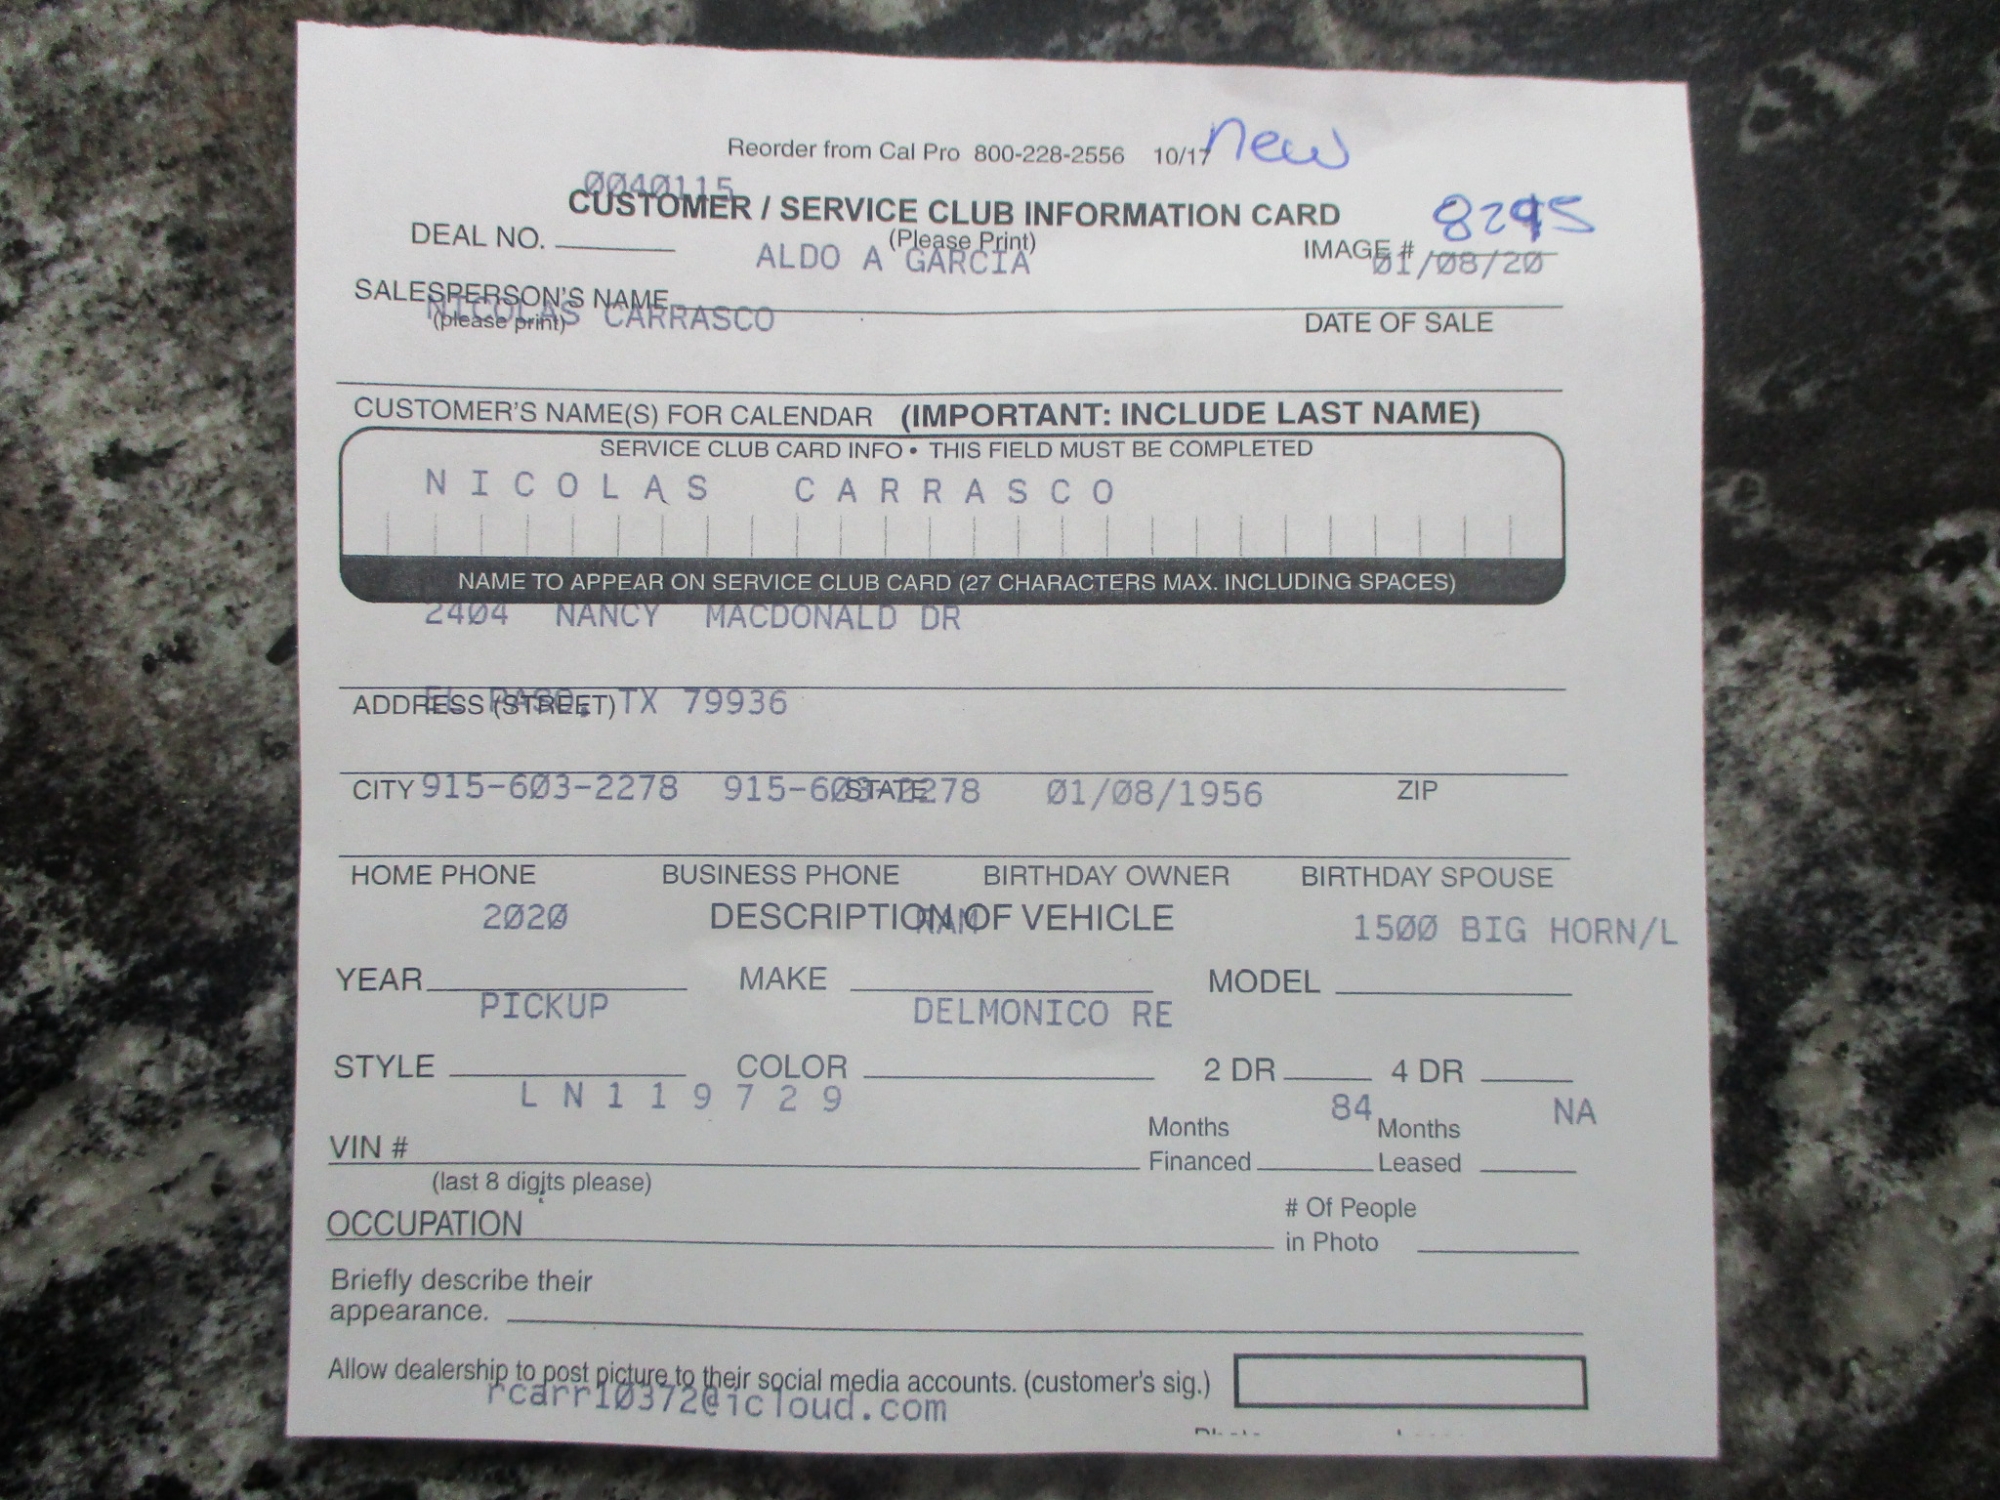 Reorder from Cal Pro 800-228-2556 10/17 new
0040115
CUSTOMER / SERVICE CLUB INFORMATION CARD 8295
DEAL NO. (Please Print) IMAGE #
ALDO A GARCIA 01/08/20
SALESPERSON'S NAME
NICOLAS CARRASCO
(please print) DATE OF SALE
CUSTOMER'S NAME(S) FOR CALENDAR (IMPORTANT: INCLUDE LAST NAME)
SERVICE CLUB CARD INFO • THIS FIELD MUST BE COMPLETED
NICOLAS CARRASCO
NAME TO APPEAR ON SERVICE CLUB CARD (27 CHARACTERS MAX. INCLUDING SPACES)
2404 NANCY MACDONALD DR
EL PASO, TX 79936
ADDRESS (STREET)
915-603-2278 915-603-2278 01/08/1956
CITY STATE ZIP
HOME PHONE BUSINESS PHONE BIRTHDAY OWNER BIRTHDAY SPOUSE
DESCRIPTION OF VEHICLE
2020 RAM 1500 BIG HORN/L
YEAR MAKE MODEL
PICKUP DELMONICO RE
STYLE COLOR 2 DR 4 DR
LN119729 84 NA
VIN # Months Financed Months Leased
(last 8 digits please)
OCCUPATION # Of People in Photo
Briefly describe their
appearance.
Allow dealership to post picture to their social media accounts. (customer's sig.)
rcarr10372@icloud.com